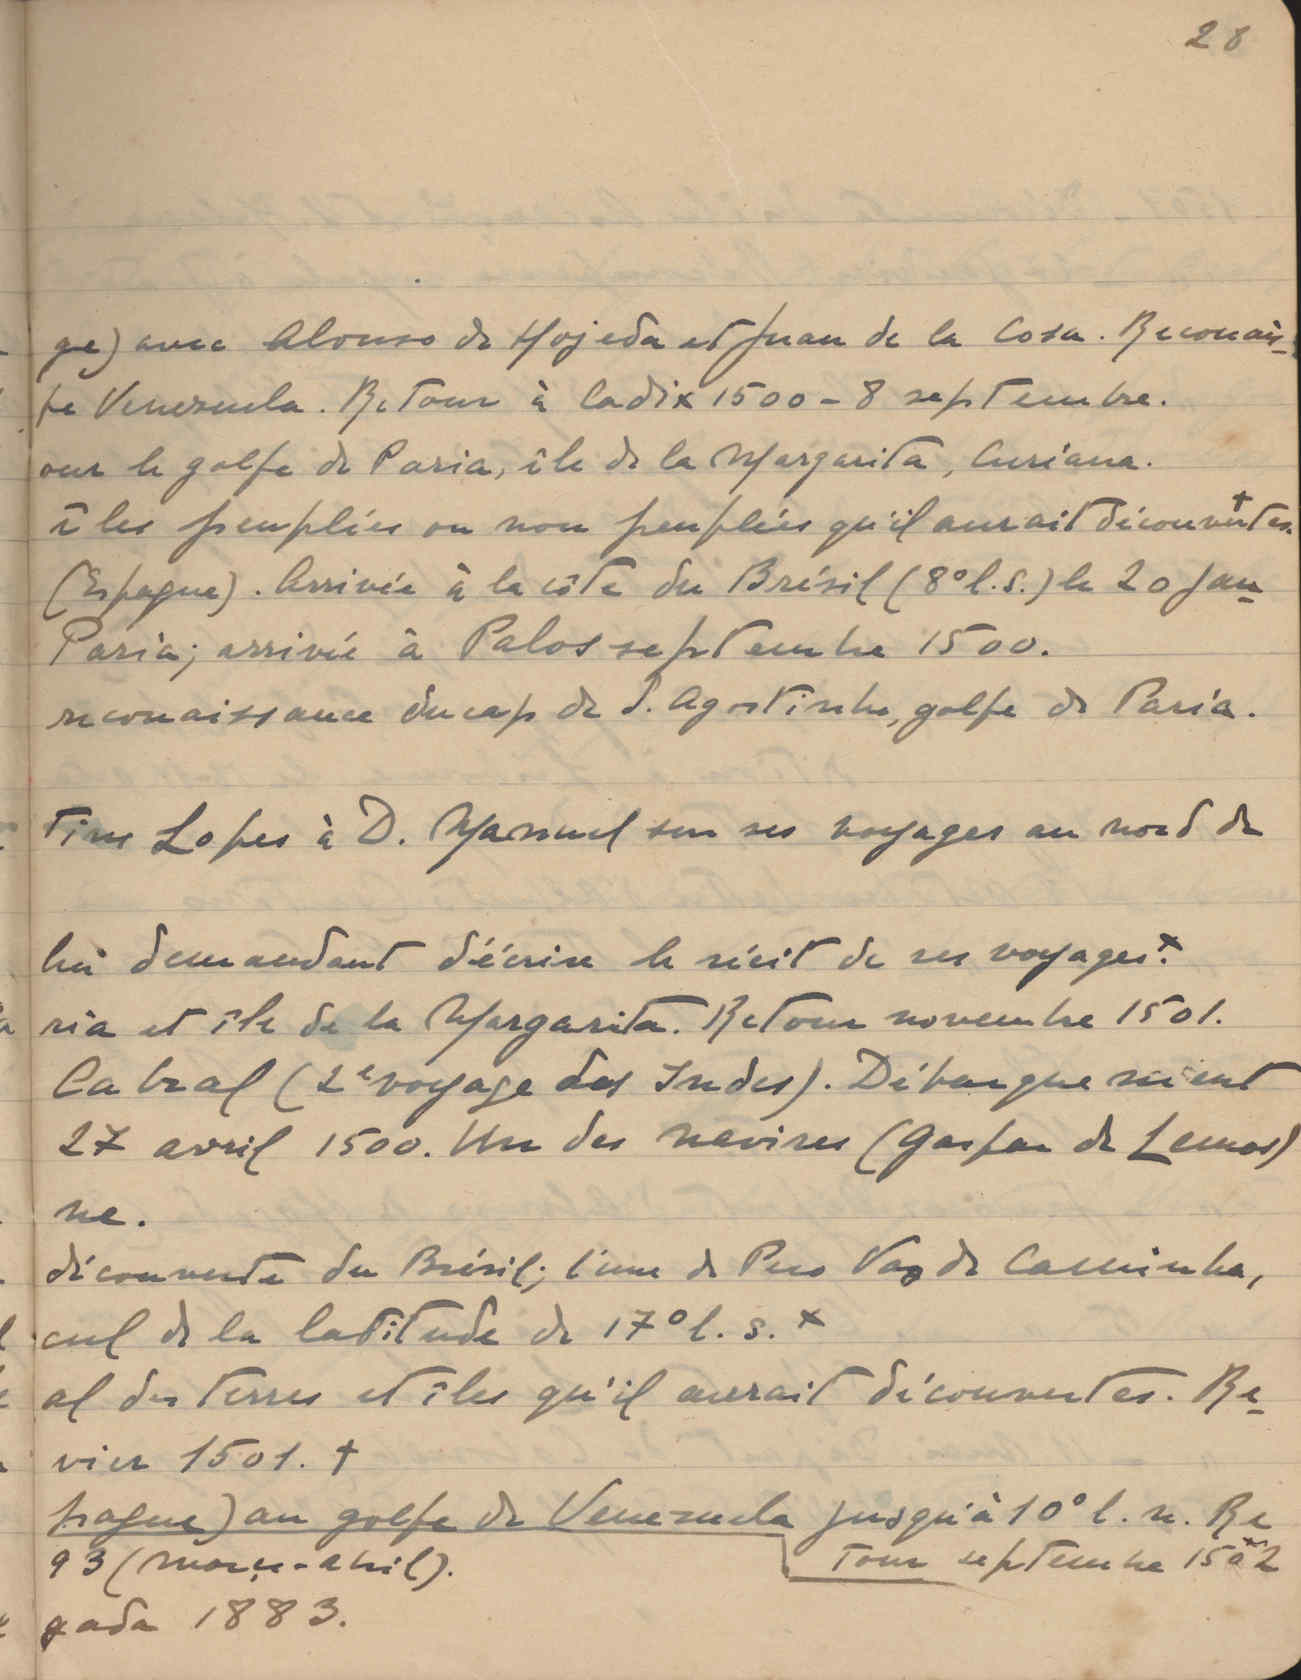 28
ge) avec Alonso de Hojeda et Juan de la Cosa. Reconais-
pe Venezuela. Retour à Cadix 1500 - 8 septembre.
our le golfe de Paria, île de la Margarita, Curiana.
îles peuplées ou non peuplées qu'il aurait découvertes. †
(Espagne). Arrivée à la côte du Brésil (8° l. S.) le 20 Jan-
Paria; arrivée à Palos septembre 1500.
reconaissance du cap de S. Agostinho, golfe de Paria.
tins Lopes à D. Manuel sur ses voyages au nord de
lui demandant d'écrire le récit de ses voyages. x
ria et île de la Margarita. Retour novembre 1501.
Cabral (2e voyage des Indes). Débarquement
27 avril 1500. Un des navires (Gaspar de Lemos)
ne.
découverte du Brésil; l'une de Pero Vaz de Caminha,
cul de la latitude de 17° l. s. x
al des terres et îles qu'il aurait découvertes. Re-
vier 1501. †
pagne) au golfe de Venezuela jusqu'à 10° l. n. Re
tour septembre 1502
93 (março-abril).
gada 1883.